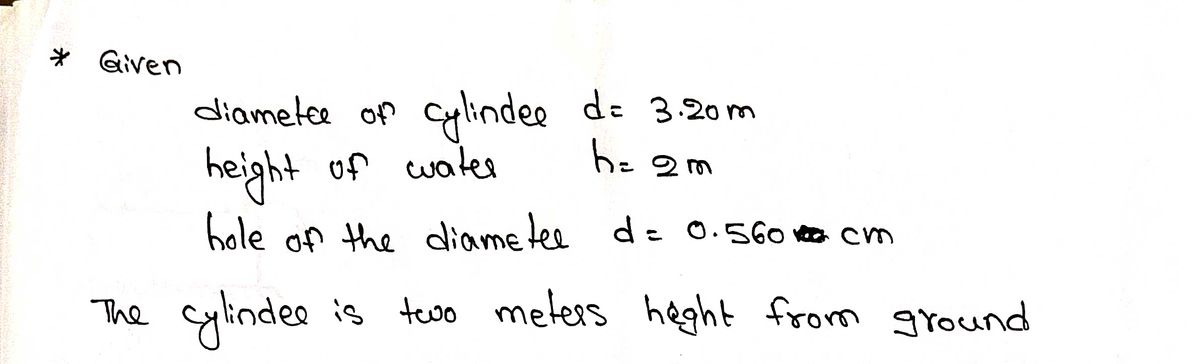 * Given
diametee of cylindee d= 3.20m
height of water h= 2m
hole of the diametee d= 0.560 cm
The cylindee is two meters heght from ground